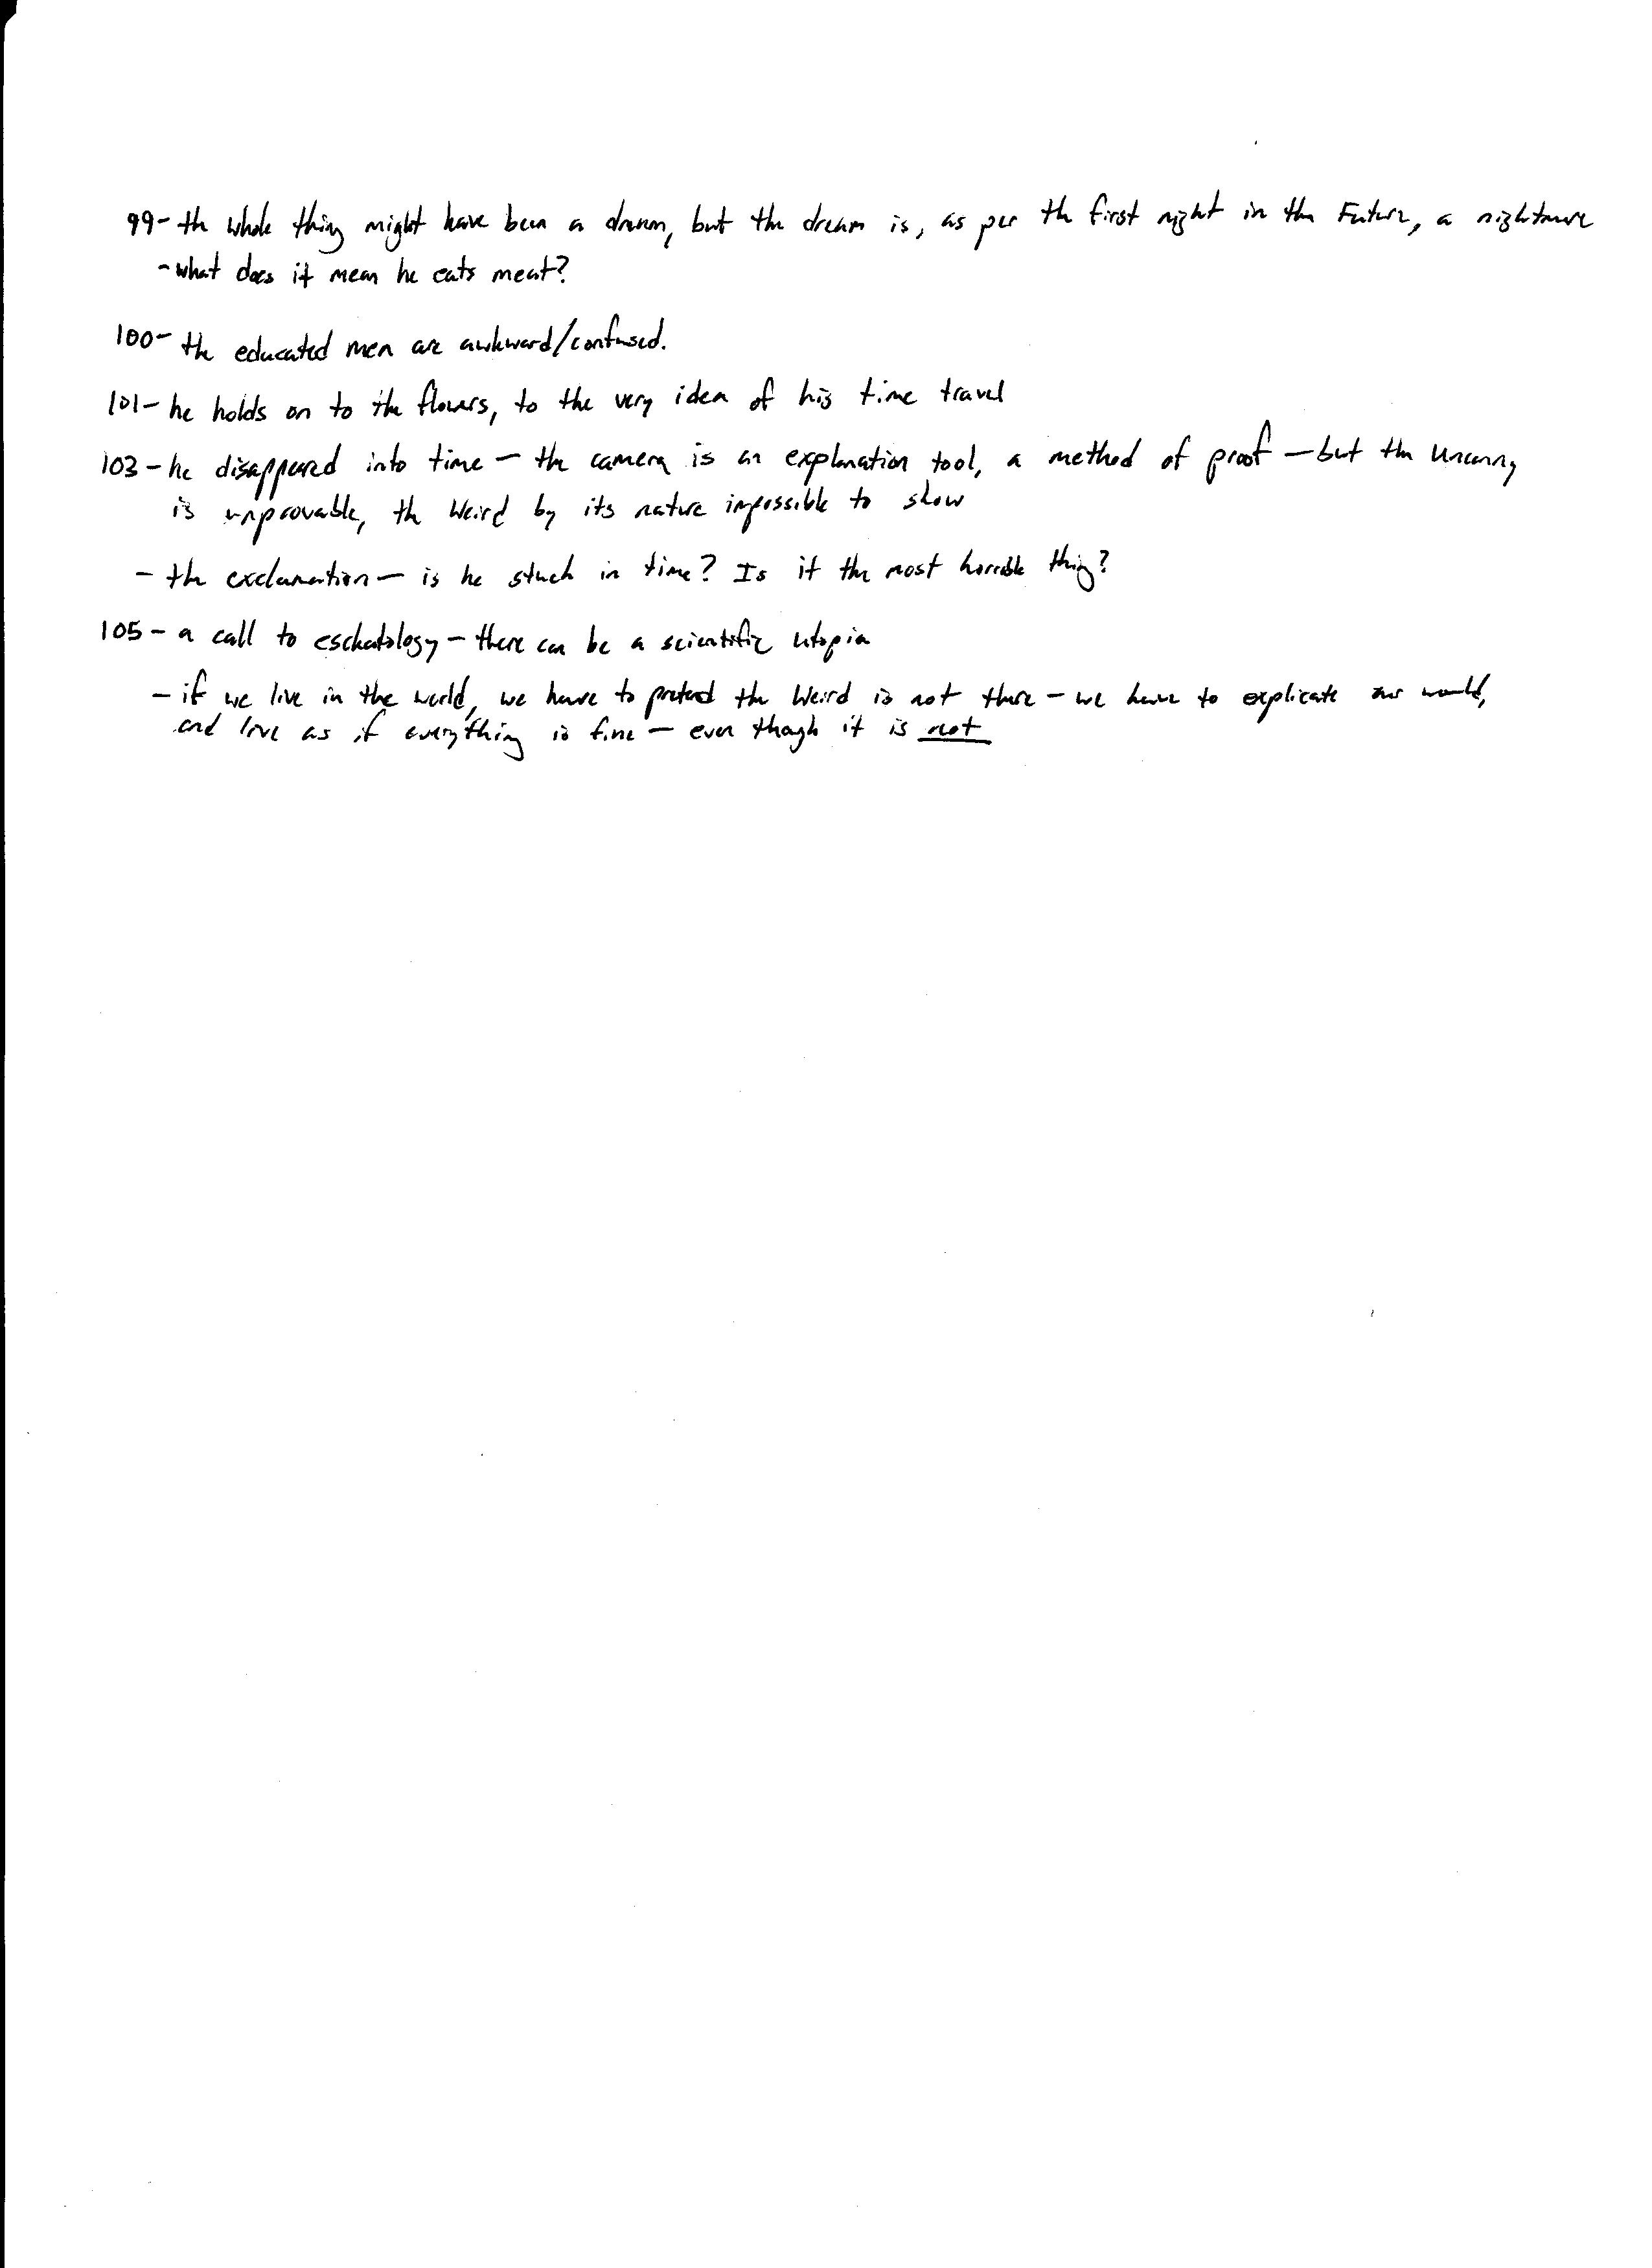 99- the whole thing might have been a dream, but the dream is, as per the first night in the Future, a nightmare
- what does it mean he eats meat?
100- the educated men are awkward/confused.
101- he holds on to the flowers, to the very idea of his time travel
103 - he disappeared into time - the camera is an explanation tool, a method of proof - but the Uncanny
is unprovable, the Weird by its nature impossible to show
- the exclamation - is he stuck in time? Is it the most horrible thing?
105 - a call to eschatology - there can be a scientific utopia
- if we live in the world, we have to pretend the Weird is not there - we have to explicate our world,
and live as if everything is fine - even though it is not